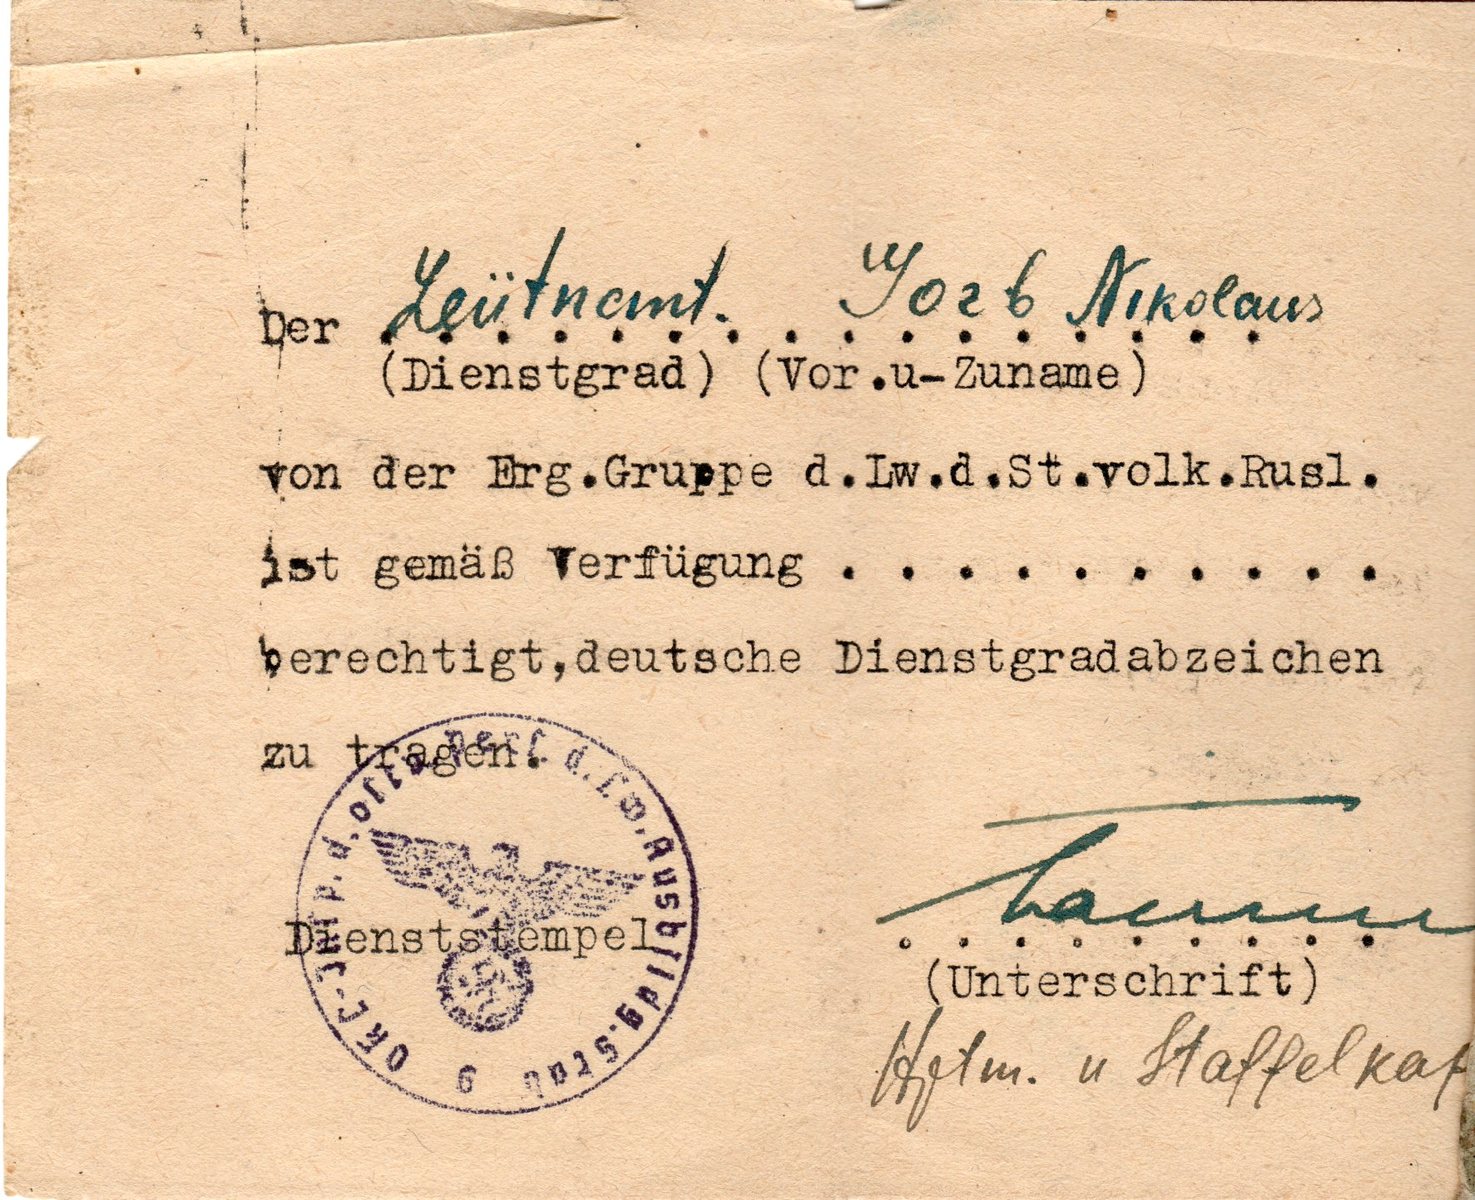 Der Leütnamt. Jorb Nikolaus
(Dienstgrad) (Vor.u-Zuname)
von der Erg.Gruppe d.Lw.d.St.volk.Rusl.
ist gemäß Verfügung . . . . . . . . . .
berechtigt,deutsche Dienstgradabzeichen
zu tragen.
Dienststempel
(Unterschrift)
Hptm. u Staffelkap